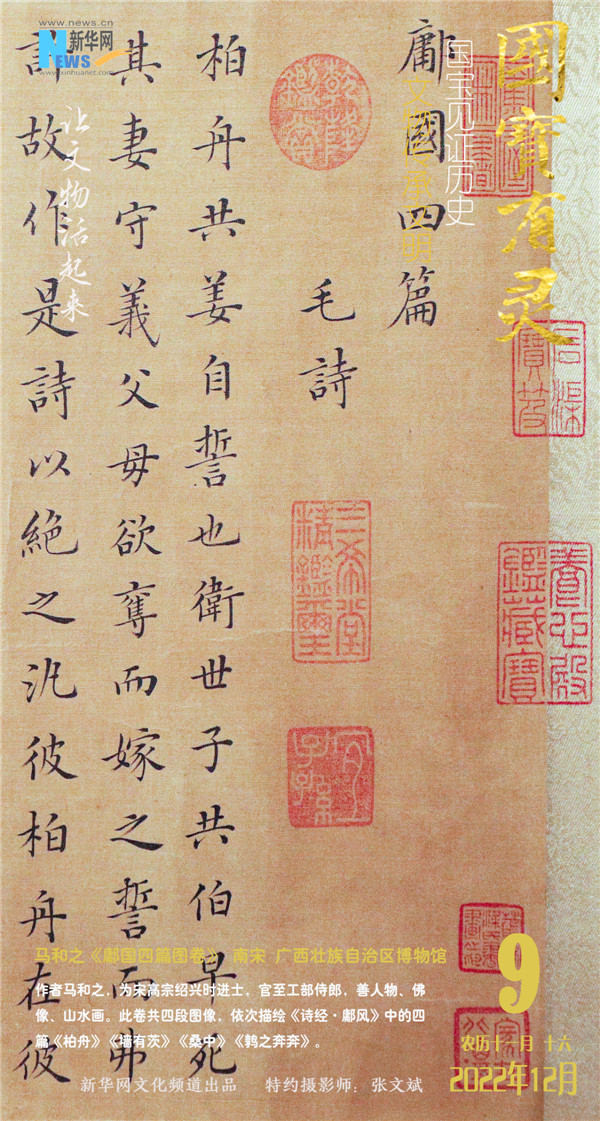 www.news.cn
NEWS 新华网
www.xinhuanet.com
國寶有灵
国宝见证历史
文物传承文明
让文物活起来
鄘國四篇
毛詩
柏舟共姜自誓也衛世子共伯早死
其妻守義父母欲奪而嫁之誓而弗
許故作是詩以絕之汎彼柏舟在彼
乾隆鑑賞
石渠寶笈
三希堂精鑑璽
養心殿鑑藏寶
宜子孫
马和之《鄘国四篇图卷》 南宋 广西壮族自治区博物馆
作者马和之，为宋高宗绍兴时进士，官至工部侍郎，善人物、佛
像、山水画。此卷共四段图像，依次描绘《诗经·鄘风》中的四
篇《柏舟》《墙有茨》《桑中》《鹑之奔奔》。
新华网文化频道出品 特约摄影师：张文斌
9
农历十一月 十六
2022年12月